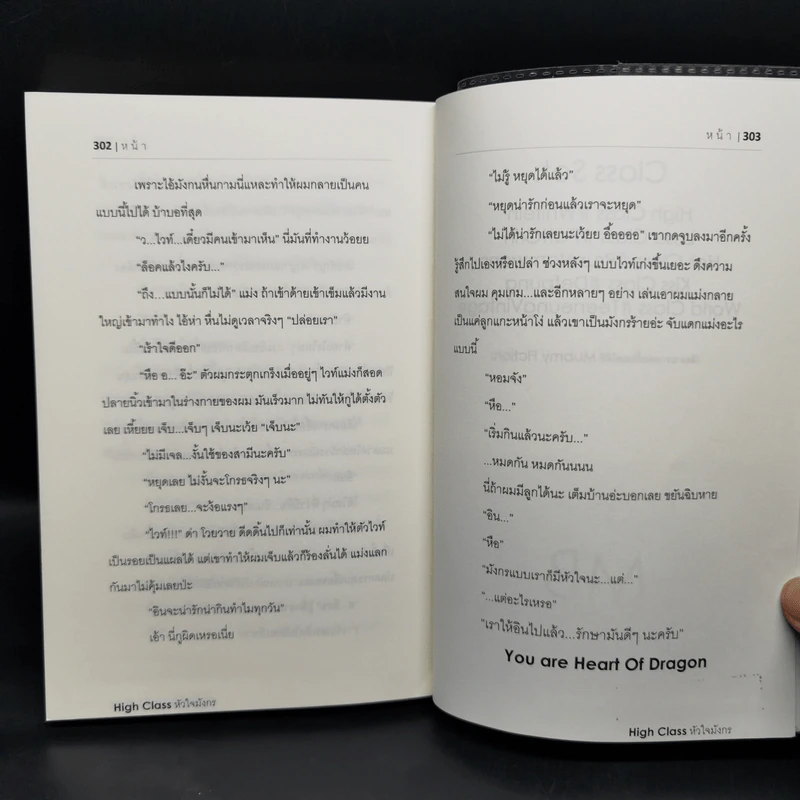 302 | ห น้ า
เพราะไอ้มังกนหื่นกามนี่แหละทำให้ผมกลายเป็นคน
แบบนี้ไปได้ บ้าบอที่สุด
“ว...ไวท์...เดี๋ยวมีคนเข้ามาเห็น” นี่มันที่ทำงานว้อยย
“ล็อคแล้วไงครับ...”
“ถึง...แบบนั้นก็ไม่ได้” แม่ง ถ้าเข้าด้ายเข้าเข็มแล้วมีงาน
ใหญ่เข้ามาทำไง ไอ้ห่า หื่นไม่ดูเวลาจริงๆ “ปล่อยเรา”
“เร้าใจดีออก”
“หือ อ... อ๊ะ” ตัวผมกระตุกเกร็งเมื่ออยู่ๆ ไวท์แม่งก็สอด
ปลายนิ้วเข้ามาในร่างกายของผม มันเร็วมาก ไม่ทันให้กูได้ตั้งตัว
เลย เหี้ยยย เจ็บ...เจ็บๆ เจ็บนะเว้ย “เจ็บนะ”
“ไม่มีเจล...งั้นใช้ของสามีนะครับ”
“หยุดเลย ไม่งั้นจะโกรธจริงๆ นะ”
“โกรธเลย...จะง้อแรงๆ”
“ไวท์!!!” ด่า โวยวาย ดีดดิ้นไปก็เท่านั้น ผมทำให้ตัวไวท์
เป็นรอยเป็นแผลได้ แต่เขาทำให้ผมเจ็บแล้วก็ร้องลั่นได้ แม่งแลก
กันมาไม่คุ้มเลยป่ะ
“อินจะน่ารักน่ากินทำไมทุกวัน”
เอ้า นี่กูผิดเหรอเนี่ย
High Class หัวใจมังกร
ห น้ า | 303
“ไม่รู้ หยุดได้แล้ว”
“หยุดน่ารักก่อนแล้วเราจะหยุด”
“ไม่ได้น่ารักเลยนะเว้ยย อื้ออออ” เขากดจูบลงมาอีกครั้ง
รู้สึกไปเองหรือเปล่า ช่วงหลังๆ แบบไวท์เก่งขึ้นเยอะ ดึงความ
สนใจผม คุมเกม...และอีกหลายๆ อย่าง เล่นเอาผมแม่งกลาย
เป็นแค่ลูกแกะหน้าโง่ แล้วเขาเป็นมังกรร้ายอ่ะ จับแดกแม่งอะไร
แบบนี้
“หอมจัง”
“หือ...”
“เริ่มกินแล้วนะครับ...”
...หมดกัน หมดกันนนน
นี่ถ้าผมมีลูกได้นะ เต็มบ้านอ่ะบอกเลย ขยันฉิบหาย
“อิน...”
“หือ”
“มังกรแบบเราก็มีหัวใจนะ...แต่...”
“...แต่อะไรเหรอ”
“เราให้อินไปแล้ว...รักษามันดีๆ นะครับ”
You are Heart Of Dragon
High Class หัวใจมังกร